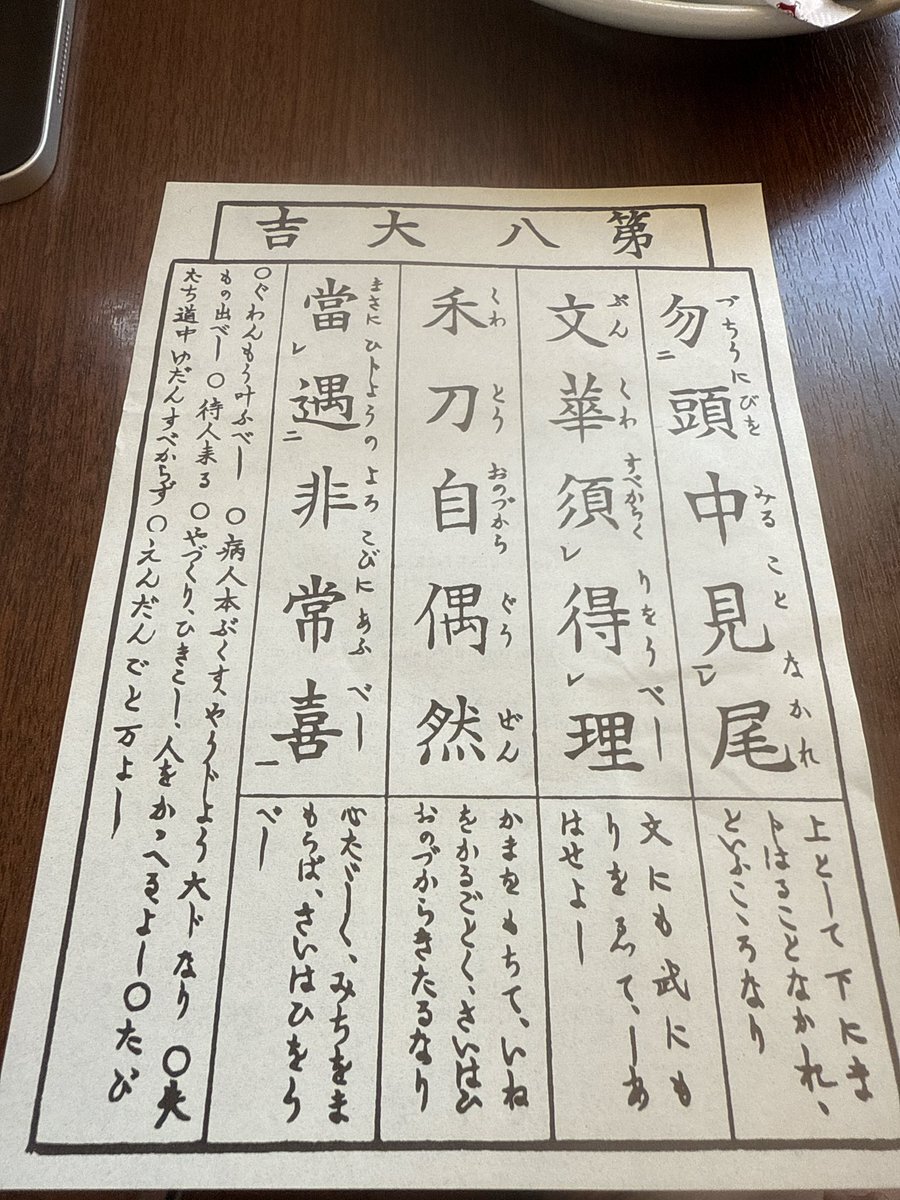 第八大吉
づちうにびを みる こと なかれ
勿二頭中見一レ尾
上として下にま
じはることなかれ、
といふこゝろなり
ぶん くわ すべからく りをうべし
文華須レ得レ理
文にも武にも
りをゑて、しあ
はせよし
くわ とう おのづから ぐう ぜん
禾刀自偶然
かまをもちて、いね
をかるごとく、さいはひ
おのづからきたるなり
まさに ひじようの よろこびに あふべし
當レ遇二非常喜一
心たゞしく、みちをま
もらば、さいはひをう
べし
○ぐわんもう叶ふべし ○病人本ぶくす、やうじよう大じなり ○失
もの出べし ○待人来る ○やづくり、ひきこし、人をかゝへるよし○たび
たち道中ゆだんすべからず ○えんだんごと万よし